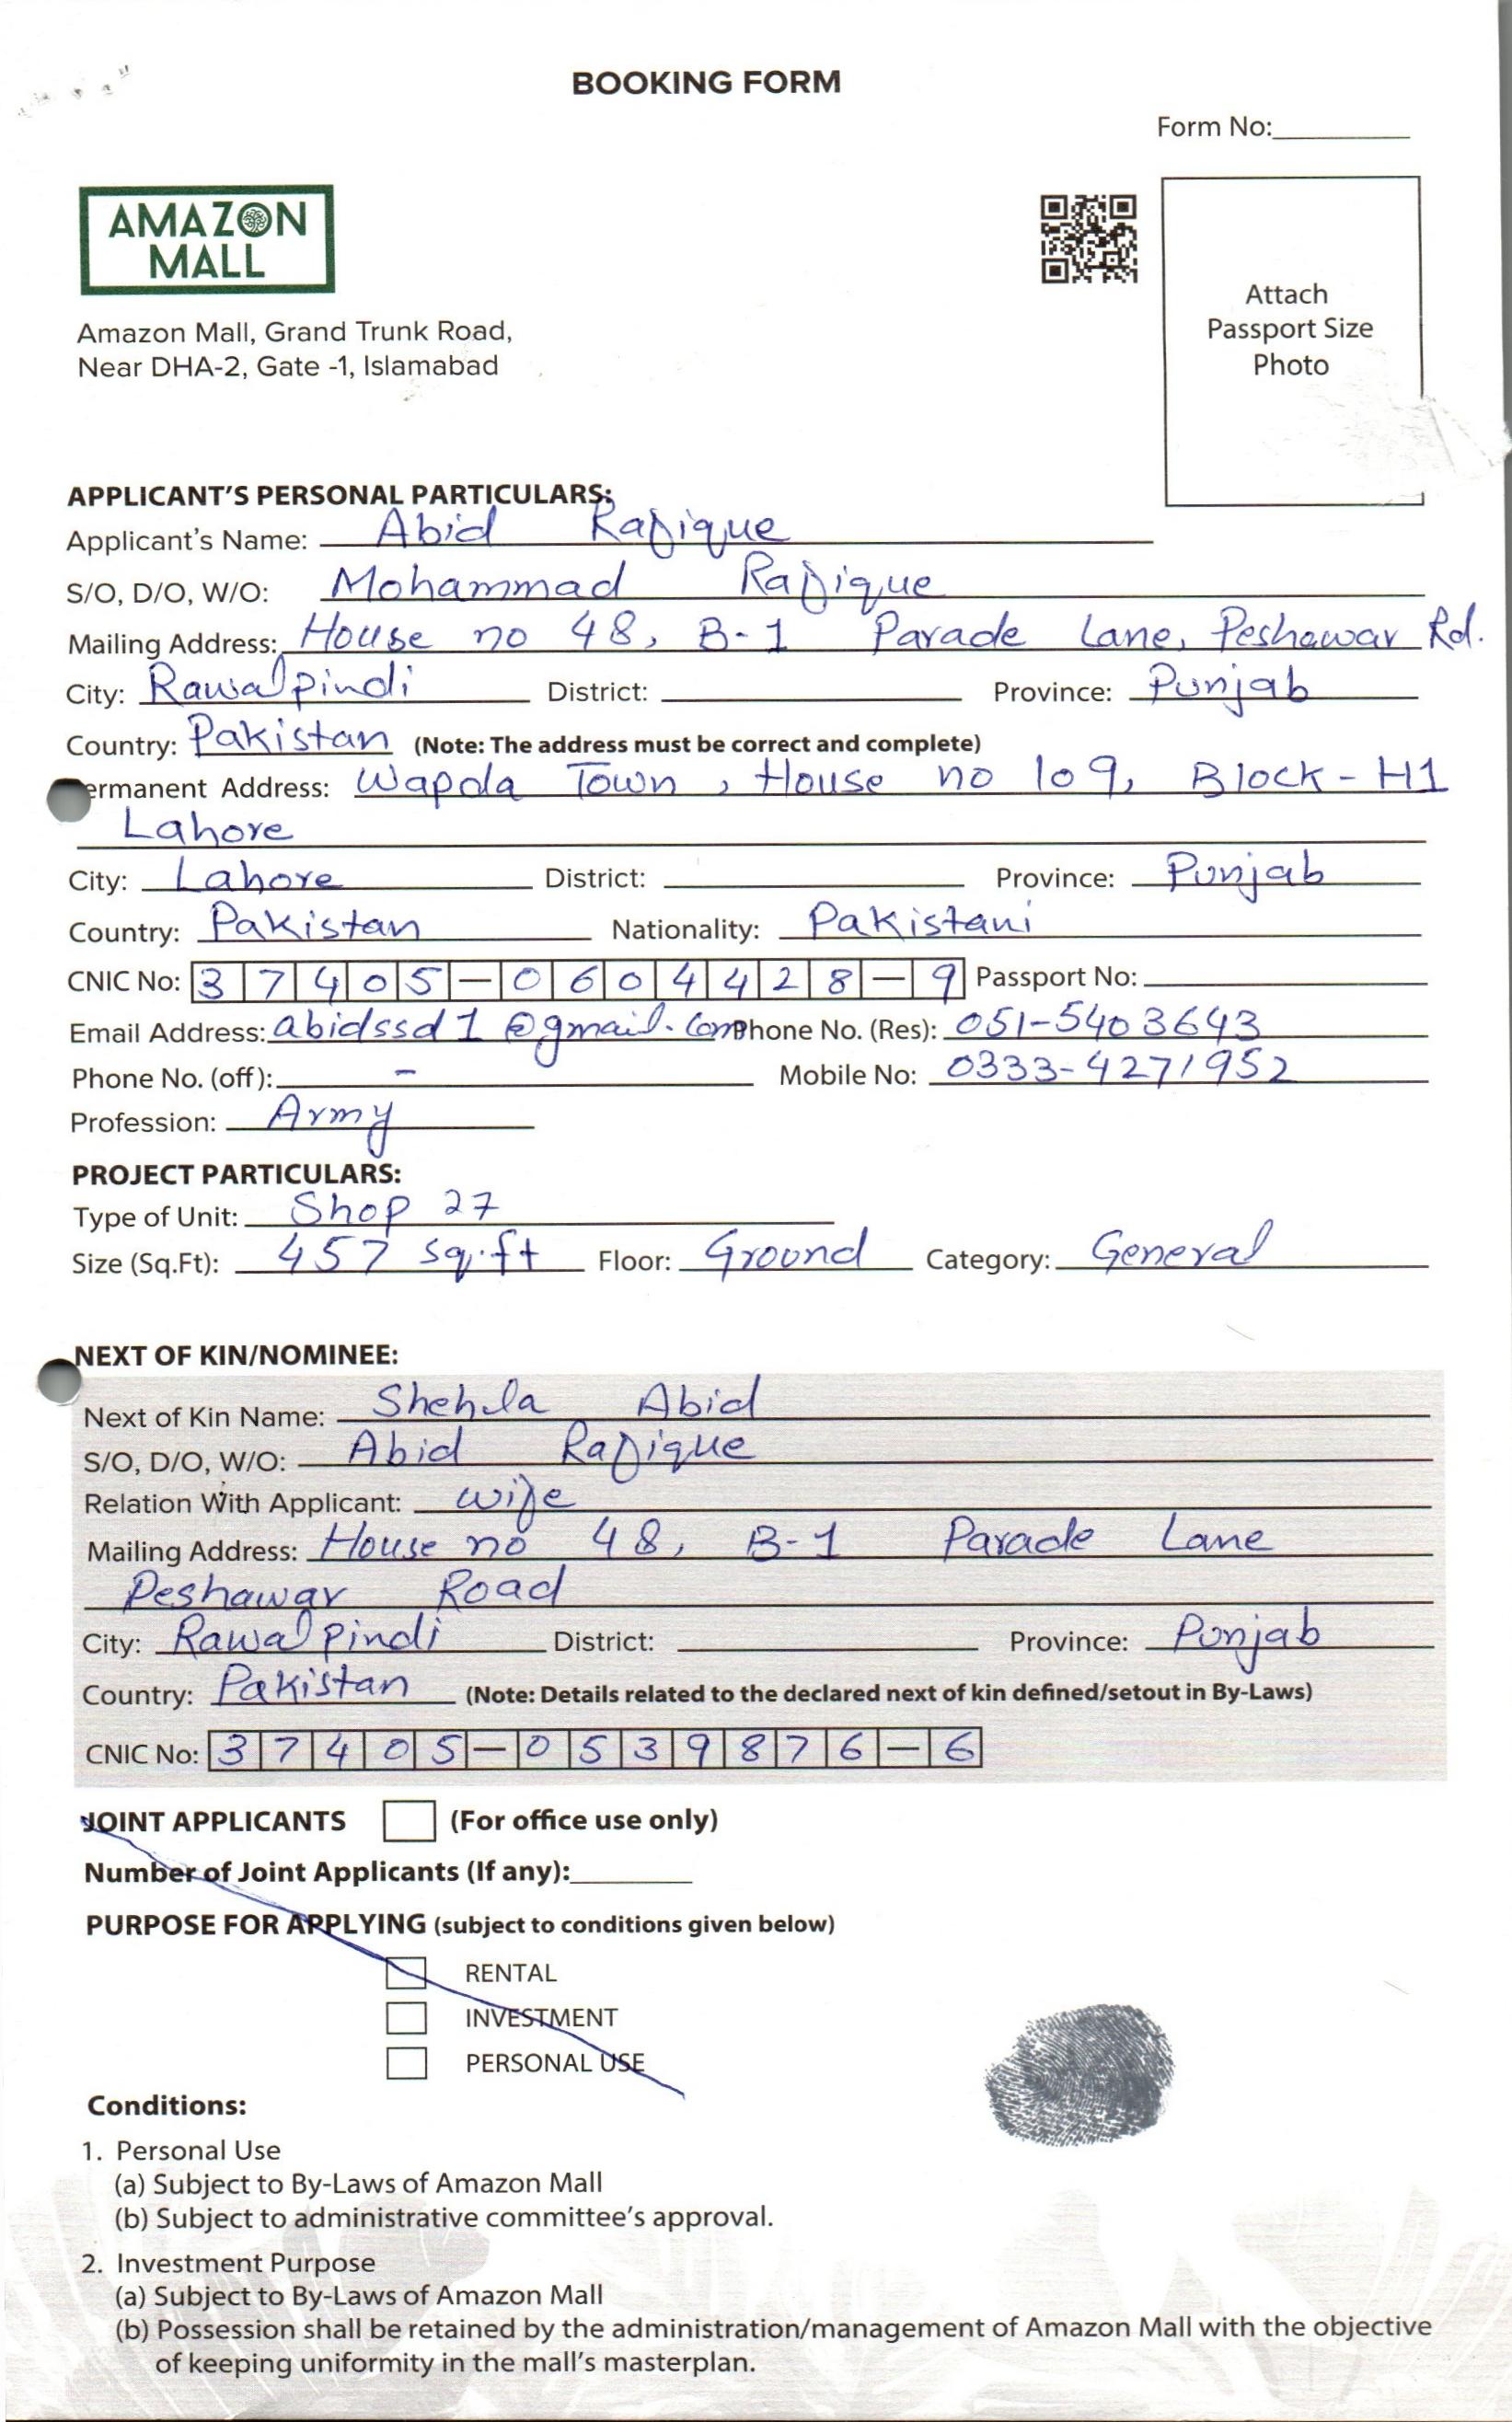 BOOKING FORM
Form No:
AMAZON
MALL
Attach
Passport Size
Photo
Amazon Mall, Grand Trunk Road,
Near DHA-2, Gate -1, Islamabad
APPLICANT'S PERSONAL PARTICULARS:
Applicant's Name: Abid Rafique
S/O, D/O, W/O: Mohammad Rafique
Mailing Address: House no 48, B-1 Parade Lane, Peshawar Rd.
City: Rawalpindi District: Province: Punjab
Country: Pakistan (Note: The address must be correct and complete)
ermanent Address: Wapda Town, House no 109, Block-H1
Lahore
City: Lahore District: Province: Punjab
Country: Pakistan Nationality: Pakistani
CNIC No: 37405-0604428-9 Passport No:
Email Address: abidssd1@gmail.com Phone No. (Res): 051-5403643
Phone No. (off): - Mobile No: 0333-4271952
Profession: Army
PROJECT PARTICULARS:
Type of Unit: Shop 27
Size (Sq.Ft): 457 sq.ft Floor: Ground Category: General
NEXT OF KIN/NOMINEE:
Next of Kin Name: Shehla Abid
S/O, D/O, W/O: Abid Rafique
Relation With Applicant: wife
Mailing Address: House no 48, B-1 Parade Lane
Peshawar Road
City: Rawalpindi District: Province: Punjab
Country: Pakistan (Note: Details related to the declared next of kin defined/setout in By-Laws)
CNIC No: 37405-0539876-6
JOINT APPLICANTS (For office use only)
Number of Joint Applicants (If any):
PURPOSE FOR APPLYING (subject to conditions given below)
RENTAL
INVESTMENT
PERSONAL USE
Conditions:
1. Personal Use
(a) Subject to By-Laws of Amazon Mall
(b) Subject to administrative committee's approval.
2. Investment Purpose
(a) Subject to By-Laws of Amazon Mall
(b) Possession shall be retained by the administration/management of Amazon Mall with the objective
of keeping uniformity in the mall's masterplan.